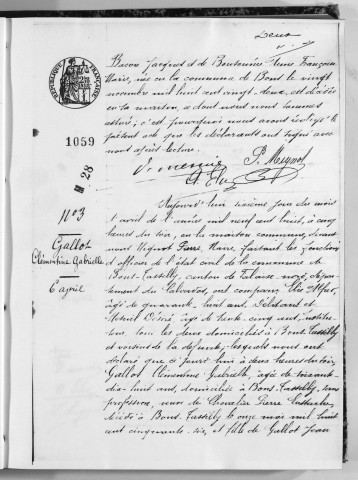 Deux
Bacon Jacques et de Boutonnier Anne Françoise
Marie, née en la commune de Bons le vingt
novembre mil huit cent vingt-deux, est décédée
en sa maison, ce dont nous nous sommes
assuré; c'est pourquoi nous avons rédigé le
présent acte que les déclarants ont signé avec
nous après lecture.
P. Mignot
A. Elie
RÉPUBLIQUE FRANÇAISE
1059
28
N° 3
Gallot
Clémentine Gabrielle
6 avril
Aujourd'hui sixième jour du mois
d'avril de l'année mil neuf cent huit, à cinq
heures du soir, en la maison commune, devant
nous Mignot Pierre, Maire, faisant les fonctions
d'officier de l'état civil de la commune de
Bons-Tassilly, canton de Falaise nord, dépar-
tement du Calvados, ont comparu Elie Alfred,
âgé de quarante huit ans, Débitant et
Désiré, âgé de trente cinq ans, institu-
teur, tous les deux domiciliés à Bons-Tassilly
et voisins de la défunte; lesquels nous ont
déclaré que ce jourd'hui à deux heures du soir,
Gallot Clémentine Gabrielle, âgée de soixante-
dix-huit ans, domiciliée à Bons-Tassilly, sans
profession, veuve de Chevalier Pierre
décédé à Bons-Tassilly le onze mai mil huit
cent cinquante-six, et fille de Gallot Jean